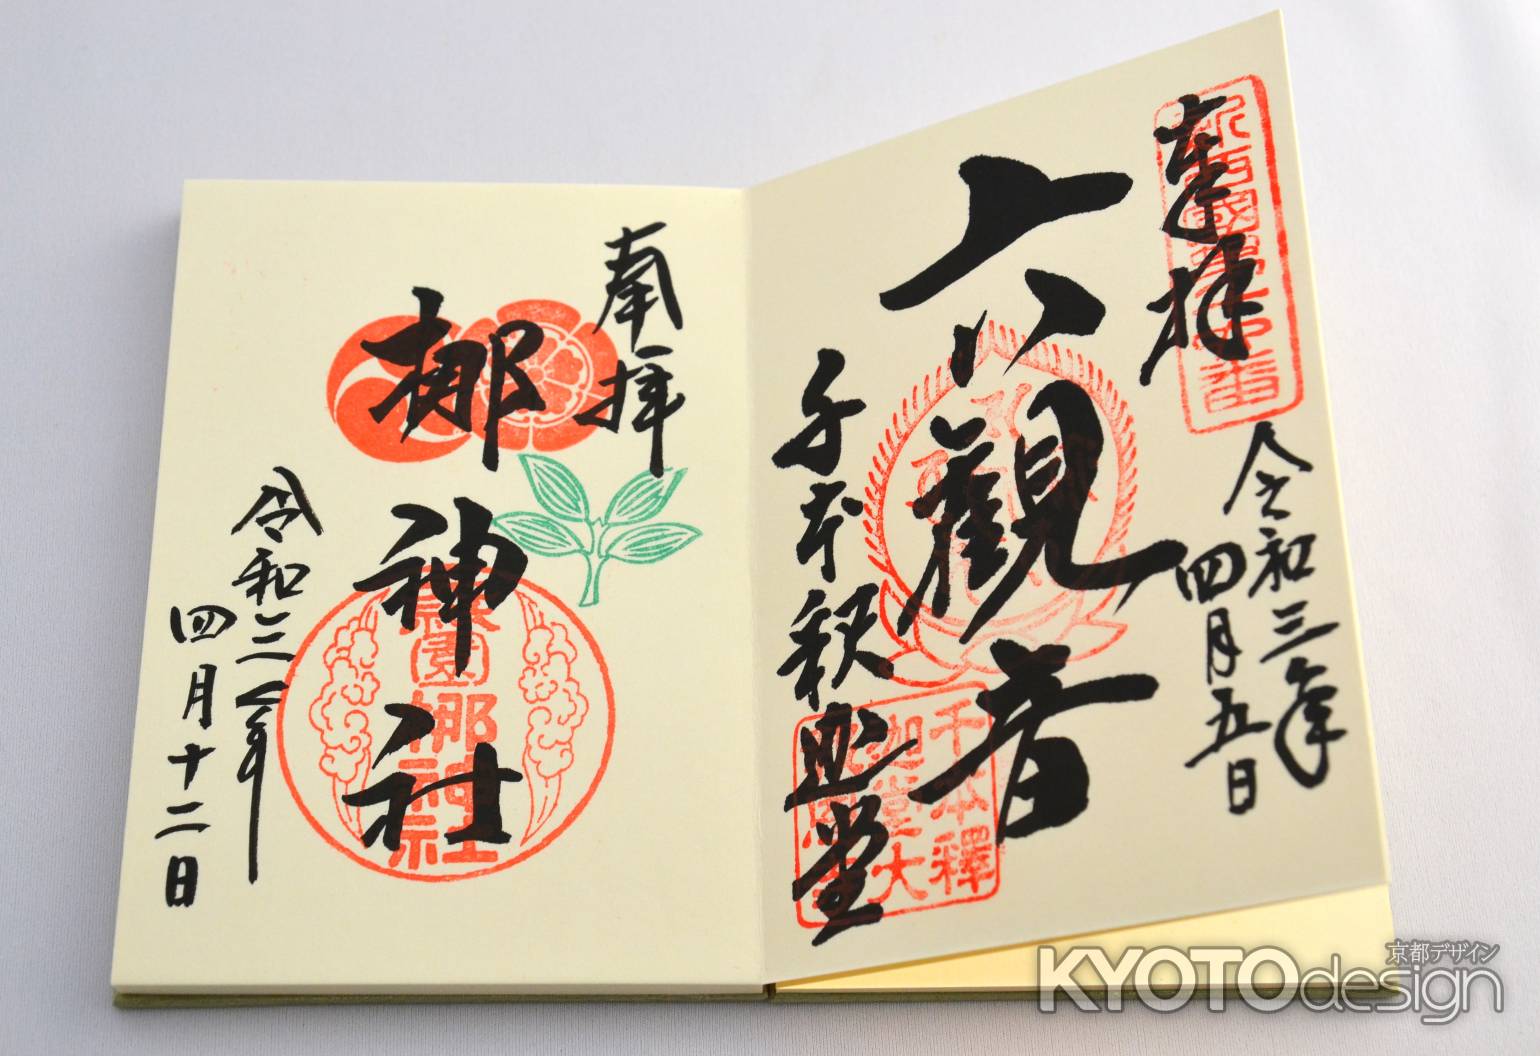 奉拝
六観音
千本釈迦堂
令和三年
四月五日
千本釋
迦堂大
奉拝
梛神社
令和三年
四月十二日
梛神社
京都デザイン
KYOTOdesign